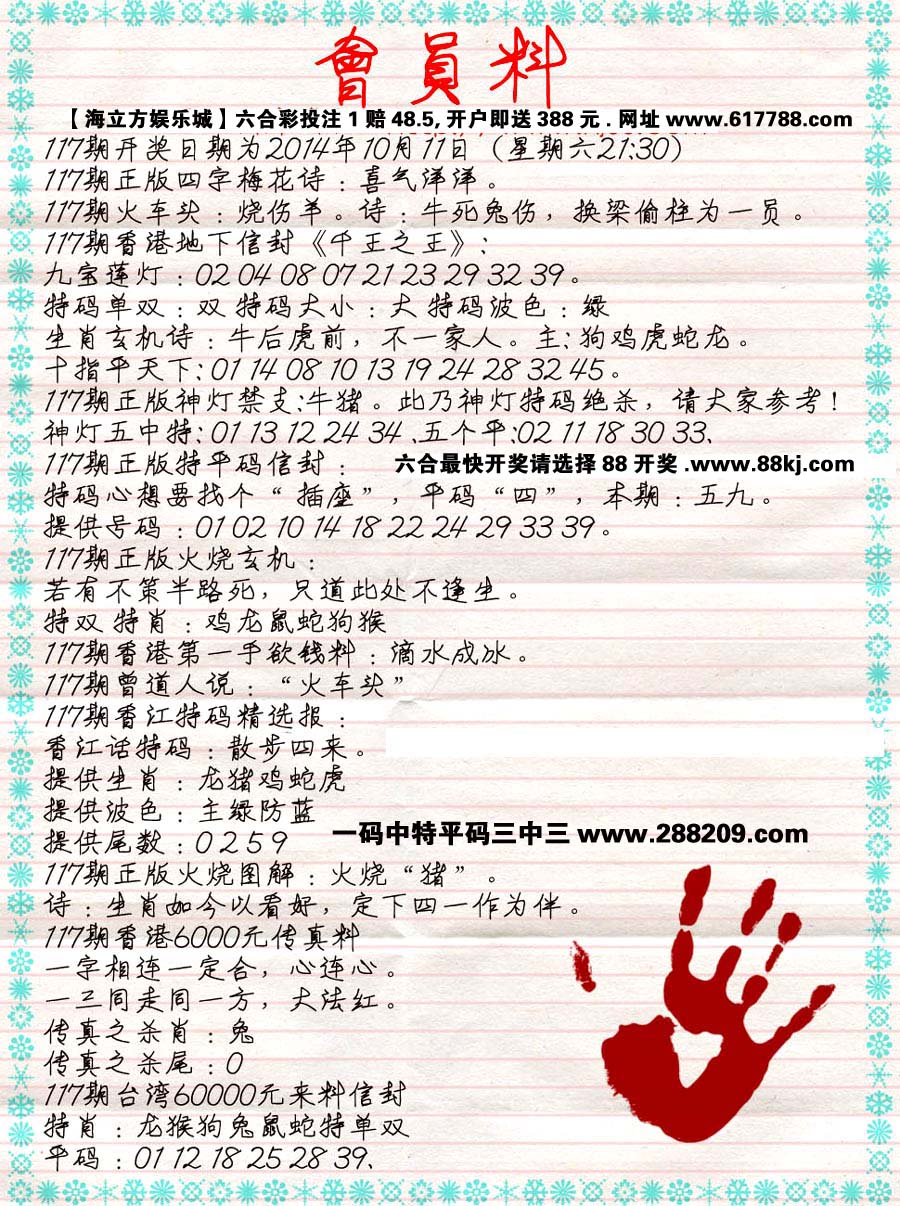 會員料
【海立方娱乐城】六合彩投注1赔48.5,开户即送388元.网址www.617788.com
117期开奖日期为2014年10月11日（星期六21:30）
117期正版四字梅花诗：喜气洋洋。
117期火车头：烧伤羊。诗：牛死兔伤，换梁偷柱为一员。
117期香港地下信封《千王之王》:
九宝莲灯：02 04 08 07 21 23 29 32 39。
特码单双：双 特码大小：大 特码波色：绿
生肖玄机诗：牛后虎前，不一家人。主:狗鸡虎蛇龙。
十指平天下:01 14 08 10 13 19 24 28 32 45。
117期正版神灯禁支:牛猪。此乃神灯特码绝杀，请大家参考！
神灯五中特:01 13 12 24 34、五个平:02 11 18 30 33、
117期正版特平码信封：
六合最快开奖请选择88开奖.www.88kj.com
特码心想要找个“插座”，平码“四”，本期：五九。
提供号码：01 02 10 14 18 22 24 29 33 39。
117期正版火烧玄机：
若有不策半路死，只道此处不逢生。
特双 特肖：鸡龙鼠蛇狗猴
117期香港第一手欲钱料：滴水成冰。
117期曾道人说：“火车头”
117期香江特码精选报：
香江话特码：散步四来。
提供生肖：龙猪鸡蛇虎
提供波色：主绿防蓝
提供尾数：0 2 5 9
一码中特平码三中三 www.288209.com
117期正版火烧图解：火烧“猪”。
诗：生肖如今以看好，定下四一作为伴。
117期香港6000元传真料
一字相连一定合，心连心。
一三同走同一方，大法红。
传真之杀肖：兔
传真之杀尾：0
117期台湾60000元来料信封
特肖：龙猴狗兔鼠蛇特单双
平码：01 12 18 25 28 39、